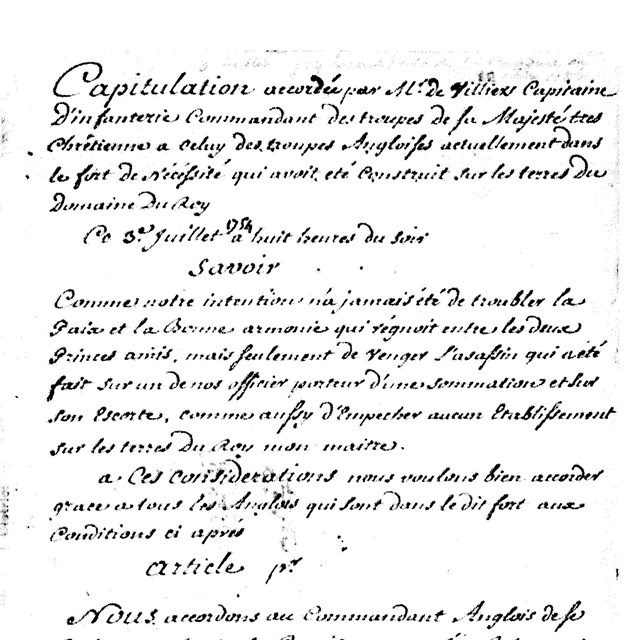 Capitulation accordée par Mr. de Villiers Capitaine
D'infanterie Commandant des troupes de sa Majesté tres
Chrêtienne a celuy des troupes Angloises actuellement dans
le fort de Nécéssité qui avoit été Construit sur les terres du
Domaine Du Roy
Ce 3e. Juillet 1754 a huit heures du soir
Savoir
Comme notre intention n'a jamais été de troubler la
Paix et la Bonne armonie qui régnoit entre les deux
Princes amis, mais seulement de Venger l'asassin qui a été
fait sur un de nos officier porteur d'une sommation et sur
son Escorte, comme aussy d'Empecher aucun Etablissement
sur les terres Du Roy mon maitre.
a Ces considerations nous voulons bien accorder
grace a tous les Anglois qui sont dans le dit fort aux
Conditions ci aprés
Article pr.
Nous accordons au Commandant Anglois de se